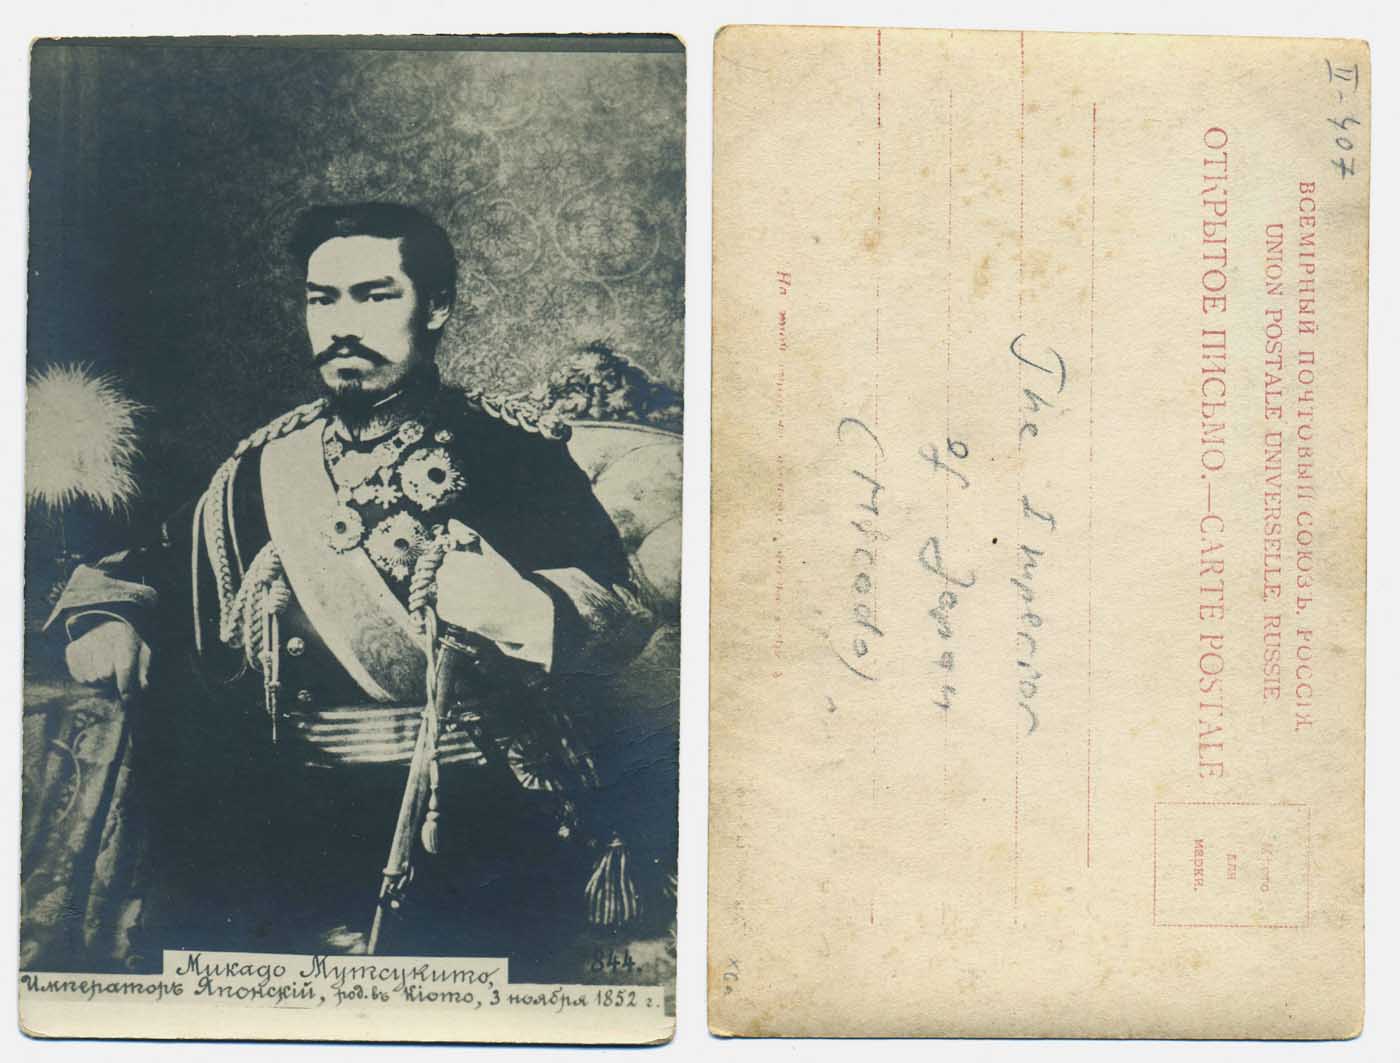 844.
Микадо Мутсукито,
Императоръ Японскій, род. въ Кіото, 3 ноября 1852 г.
II-907
ВСЕМІРНЫЙ ПОЧТОВЫЙ СОЮЗЪ. РОССІЯ.
UNION POSTALE UNIVERSELLE. RUSSIE.
ОТКРЫТОЕ ПИСЬМО.—CARTE POSTALE
Мѣсто
для
марки.
The Imperior
of Japan
(Micado)
На этой